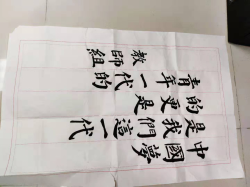 中國夢是我們這一代
的更是青年一代的
教師組